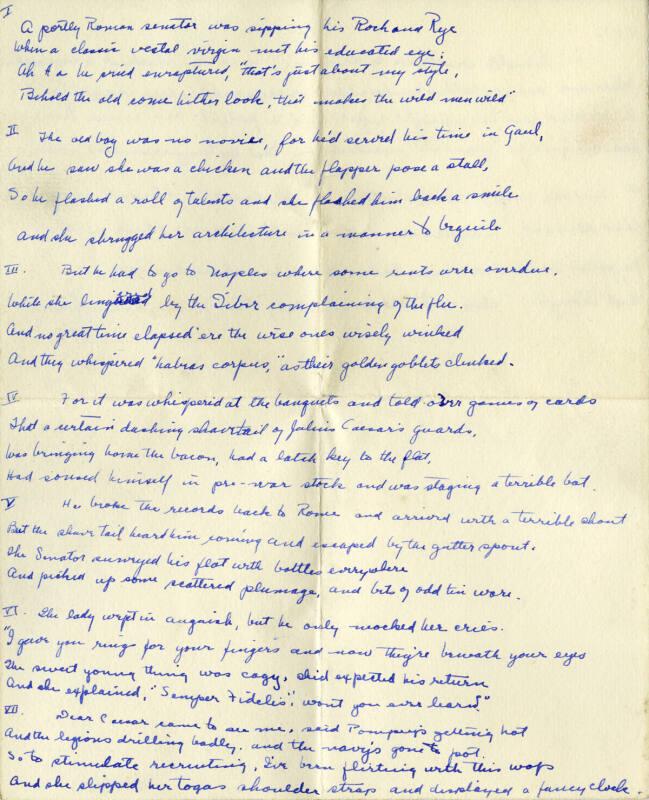 I
A portly Roman senator was sipping his Rock and Rye
When a classic vestal virgin met his educated eye;
Ah ha he cried enraptured, "that's just about my style,
Behold the old come hither look, that makes the wild men wild"
II The old boy was no novice, for he'd served his time in Gaul,
And he saw she was a chicken and the flapper pose a stall,
So he flashed a roll of talents and she flashed him back a smile
And she shrugged her architecture in a manner to beguile
III. But he had to go to Naples where some rents were overdue,
While she ling by the Tiber complaining of the flu.
And no great time elapsed 'ere the wise ones wisely winked
And they whispered "habeas corpus," as their golden goblets clinked.
IV For it was whispered at the banquets and told over games of cards
That a certain dashing shavetail of Julius Caesar's guards,
Was bringing home the bacon, had a latch key to the flat,
Had soused himself in pre-war stock and was staging a terrible bat.
V He broke the records back to Rome and arrived with a terrible shout
But the shave tail heard him coming and escaped by the gutter spout.
The Senator surveyed his flat with bottles everywhere
And picked up some scattered plumage, and bits of odd tin ware.
VI. The lady wept in anguish, but he only mocked her cries.
"I gave you rings for your fingers and now they're beneath your eyes
The sweet young thing was cagy, she'd expected his return
And she explained, "Semper Fidelis", won't you ever learn?"
VII. Dear Caesar came to see me, said Pompey's getting hot
And the legions drilling badly, and the navy's gone to pot.
So to stimulate recruiting, I've been flirting with this wops
And she slipped her togas shoulder straps and displayed a fancy clock.